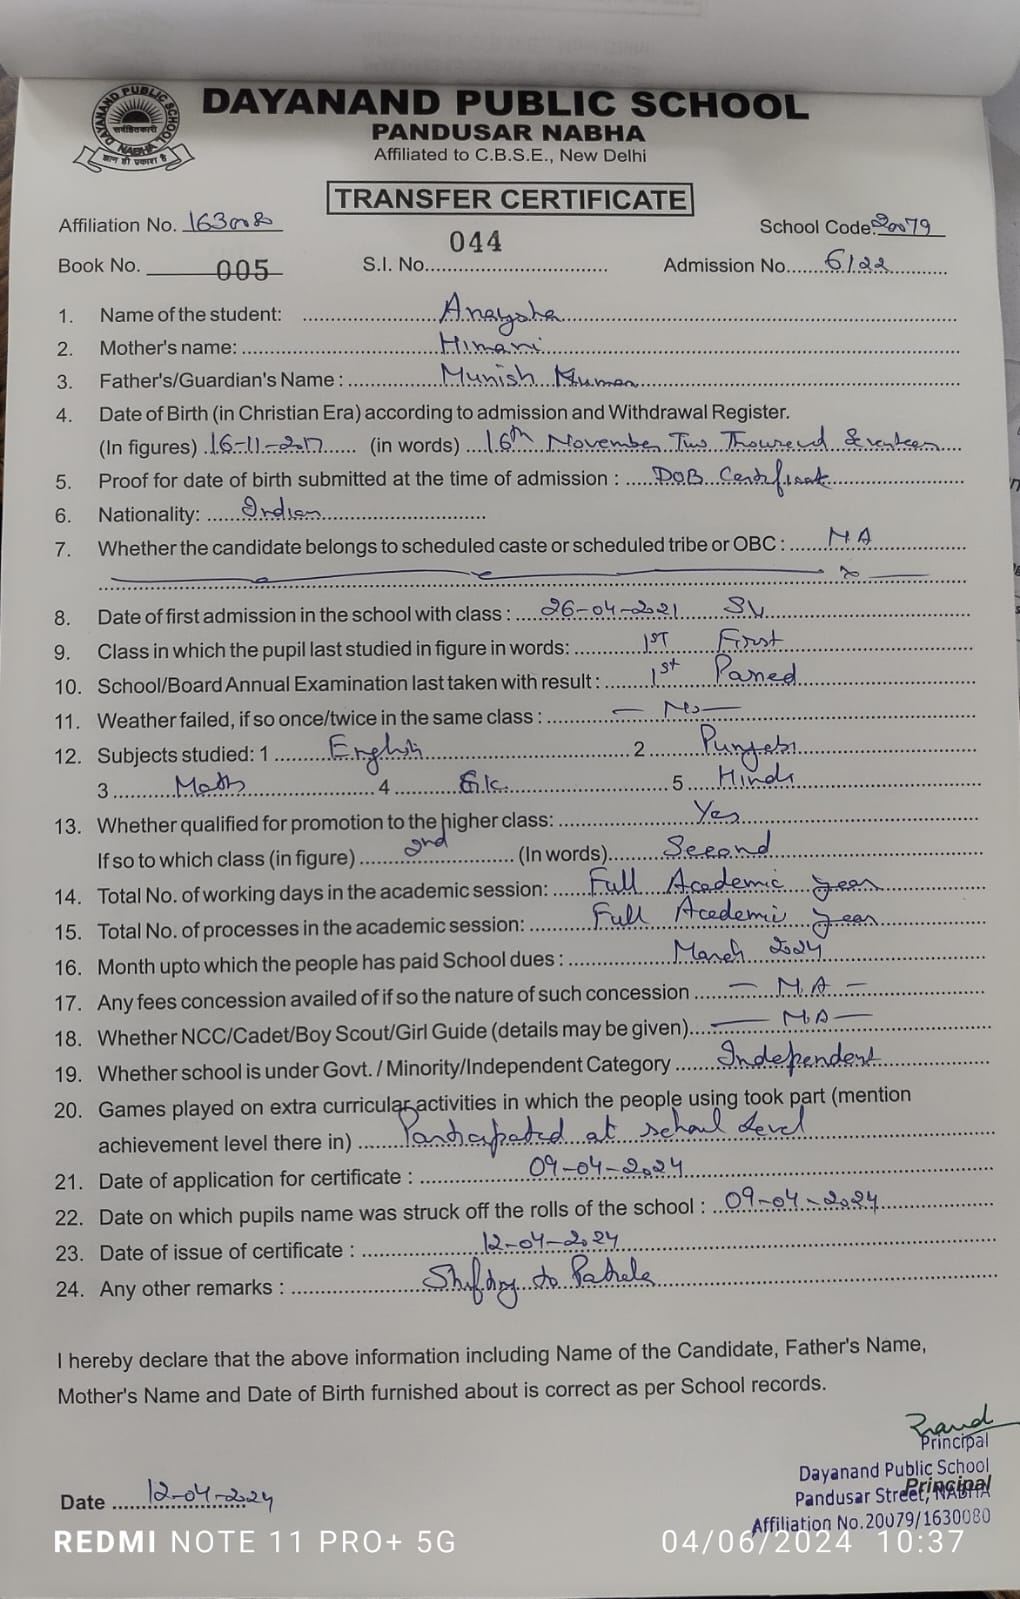 DAYANAND PUBLIC SCHOOL NABHA
सर्वहितकारी
ज्ञान ही प्रकाश है
DAYANAND PUBLIC SCHOOL
PANDUSAR NABHA
Affiliated to C.B.S.E., New Delhi
TRANSFER CERTIFICATE
Affiliation No. 163008 School Code: 20079
Book No. 005 S.I. No. 044 Admission No. 6122
1. Name of the student: Anaysha
2. Mother's name: Himani
3. Father's/Guardian's Name : Munish Kumar
4. Date of Birth (in Christian Era) according to admission and Withdrawal Register.
(In figures) 16-11-2017 (in words) 16th November Two Thousand Seventeen
5. Proof for date of birth submitted at the time of admission : DOB Certificate
6. Nationality: Indian
7. Whether the candidate belongs to scheduled caste or scheduled tribe or OBC : NA
8. Date of first admission in the school with class : 26-04-2021
9. Class in which the pupil last studied in figure in words: 1ST First
10. School/Board Annual Examination last taken with result : 1st Passed
11. Weather failed, if so once/twice in the same class : — No —
12. Subjects studied: 1 English 2 Punjabi
3 Math 4 G.k. 5 Hindi
13. Whether qualified for promotion to the higher class: Yes
If so to which class (in figure) 2nd (In words) Second
14. Total No. of working days in the academic session: Full Academic year
15. Total No. of processes in the academic session: Full Academic year
16. Month upto which the people has paid School dues : March 2024
17. Any fees concession availed of if so the nature of such concession — N.A —
18. Whether NCC/Cadet/Boy Scout/Girl Guide (details may be given) — N.A —
19. Whether school is under Govt. / Minority/Independent Category Independent
20. Games played on extra curricular activities in which the people using took part (mention
achievement level there in) Participated at school level
21. Date of application for certificate : 09-04-2024
22. Date on which pupils name was struck off the rolls of the school : 09-04-2024
23. Date of issue of certificate : 12-04-2024
24. Any other remarks : Shifting to Patiala
I hereby declare that the above information including Name of the Candidate, Father's Name,
Mother's Name and Date of Birth furnished about is correct as per School records.
Principal
Dayanand Public School
Principal
Pandusar Street, NABHA
Affiliation No.20079/1630080
Date 12-04-2024
REDMI NOTE 11 PRO+ 5G 04/06/2024 10:37